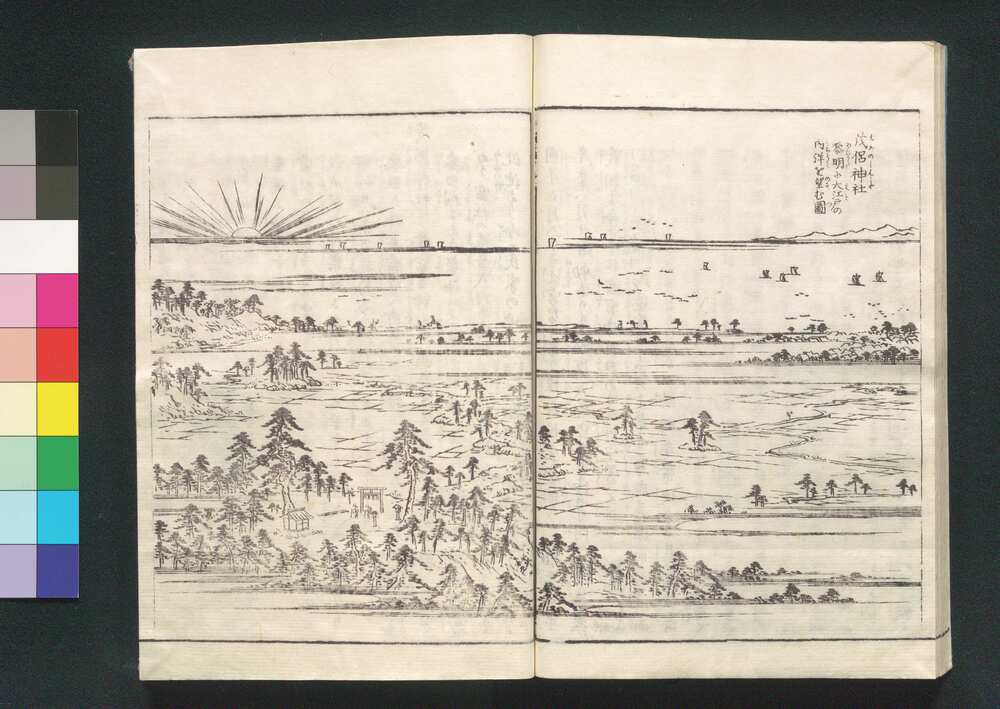 茂侶神社
黎明に大江戸の
内洋を望む圖